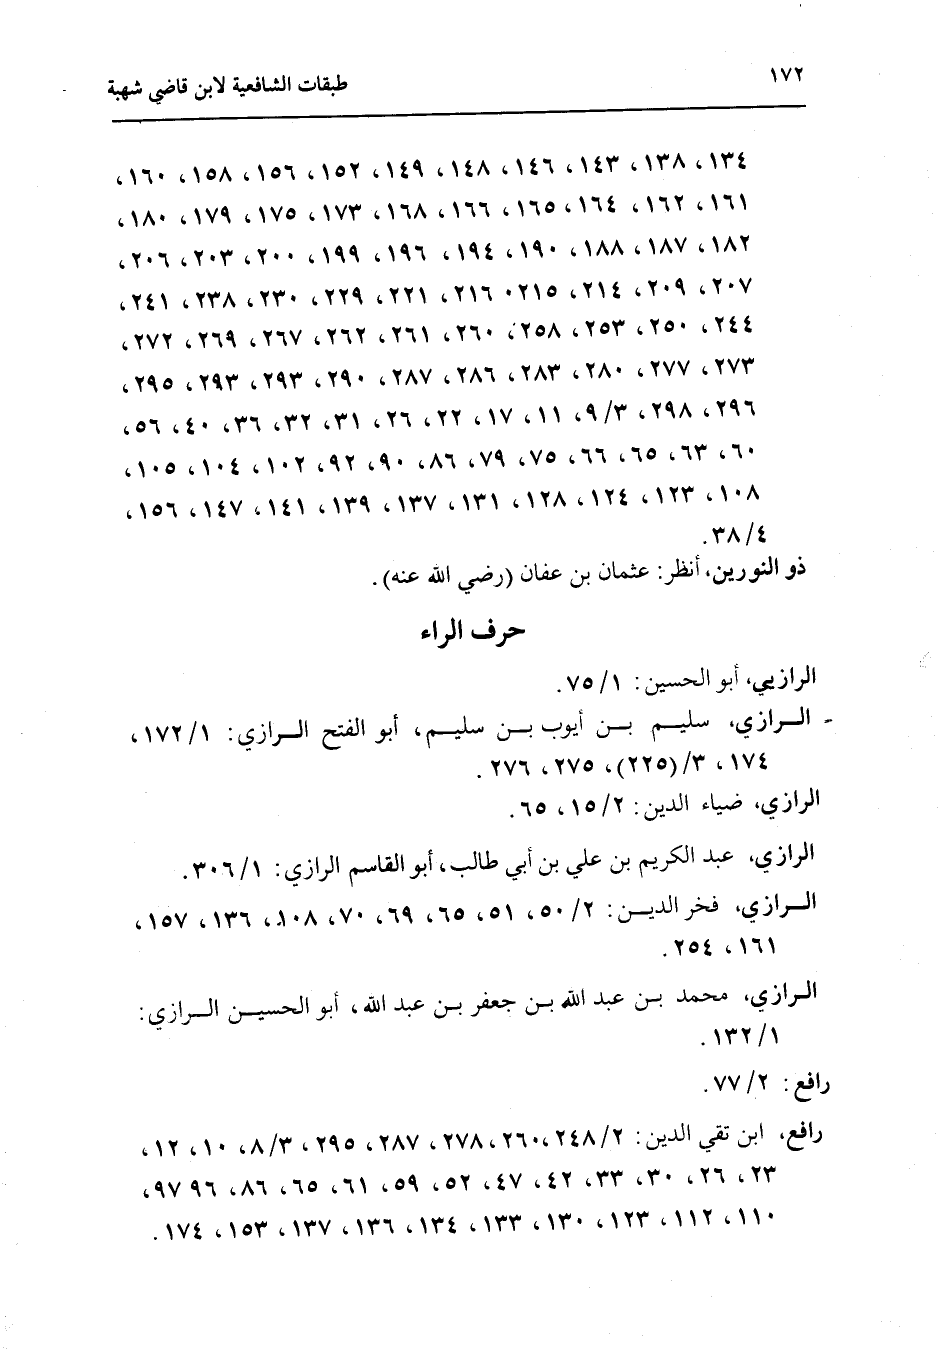 ١٧٢
طبقات الشافعية لابن قاضي شهبة
١٣٤، ١٣٨، ١٤٣، ١٤٦، ١٤٨، ١٤٩، ١٥٢، ١٥٦، ١٥٨، ١٦٠،
١٦١، ١٦٢، ١٦٤، ١٦٥، ١٦٦، ١٦٨، ١٧٣، ١٧٥، ١٧٩، ١٨٠،
١٨٢، ١٨٧، ١٨٨، ١٩٠، ١٩٤، ١٩٦، ١٩٩، ٢٠٠، ٢٠٣، ٢٠٦،
٢٠٧، ٢٠٩، ٢١٤، ٢١٥٠ ٢١٦، ٢٢١، ٢٢٩، ٢٣٠، ٢٣٨، ٢٤١،
٢٤٤، ٢٥٠، ٢٥٣، ٢٥٨، ٢٦٠، ٢٦١، ٢٦٢، ٢٦٧، ٢٦٩، ٢٧٢،
٢٧٣، ٢٧٧، ٢٨٠، ٢٨٣، ٢٨٦، ٢٨٧، ٢٩٠، ٢٩٣، ٢٩٣، ٢٩٥،
٢٩٦، ٢٩٨، ٩/٣، ١١، ١٧، ٢٢، ٢٦، ٣١، ٣٢، ٣٦، ٤٠، ٥٦،
٦٠، ٦٣، ٦٥، ٦٦، ٧٥، ٧٩، ٨٦، ٩٠، ٩٢، ١٠٢، ١٠٤، ١٠٥،
١٠٨، ١٢٣، ١٢٤، ١٢٨، ١٣١، ١٣٧، ١٣٩، ١٤١، ١٤٧، ١٥٦،
٣٨/٤.
ذو النورين، أنظر: عثمان بن عفان (رضي الله عنه).
حرف الراء
الرازيي، أبو الحسين: ٧٥/١.
- الرازي، سليم بن أيوب بن سليم، أبو الفتح الرازي: ١٧٢/١،
١٧٤، ٣/(٢٢٥)، ٢٧٥، ٢٧٦.
الرازي، ضياء الدين: ١٥/٢، ٦٥.
الرازي، عبد الكريم بن علي بن أبي طالب، أبو القاسم الرازي: ٣٠٦/١.
الرازي، فخر الدين: ٥٠/٢، ٥١، ٦٥، ٦٩، ٧٠، ١٠٨، ١٣٦، ١٥٧،
١٦١، ٢٥٤.
الرازي، محمد بن عبد الله بن جعفر بن عبد الله، أبو الحسين الرازي:
١٣٢/١.
رافع: ٧٧/٢.
رافع، ابن تقي الدين: ٢٤٨/٢، ٢٦٠، ٢٧٨، ٢٨٧، ٢٩٥، ٨/٣، ١٠، ١٢،
٢٣، ٢٦، ٣٠، ٣٣، ٤٢، ٤٧، ٥٢، ٥٩، ٦١، ٦٥، ٨٦، ٩٦ ٩٧،
١١٠، ١١٢، ١٢٣، ١٣٠، ١٣٣، ١٣٤، ١٣٦، ١٣٧، ١٥٣، ١٧٤.